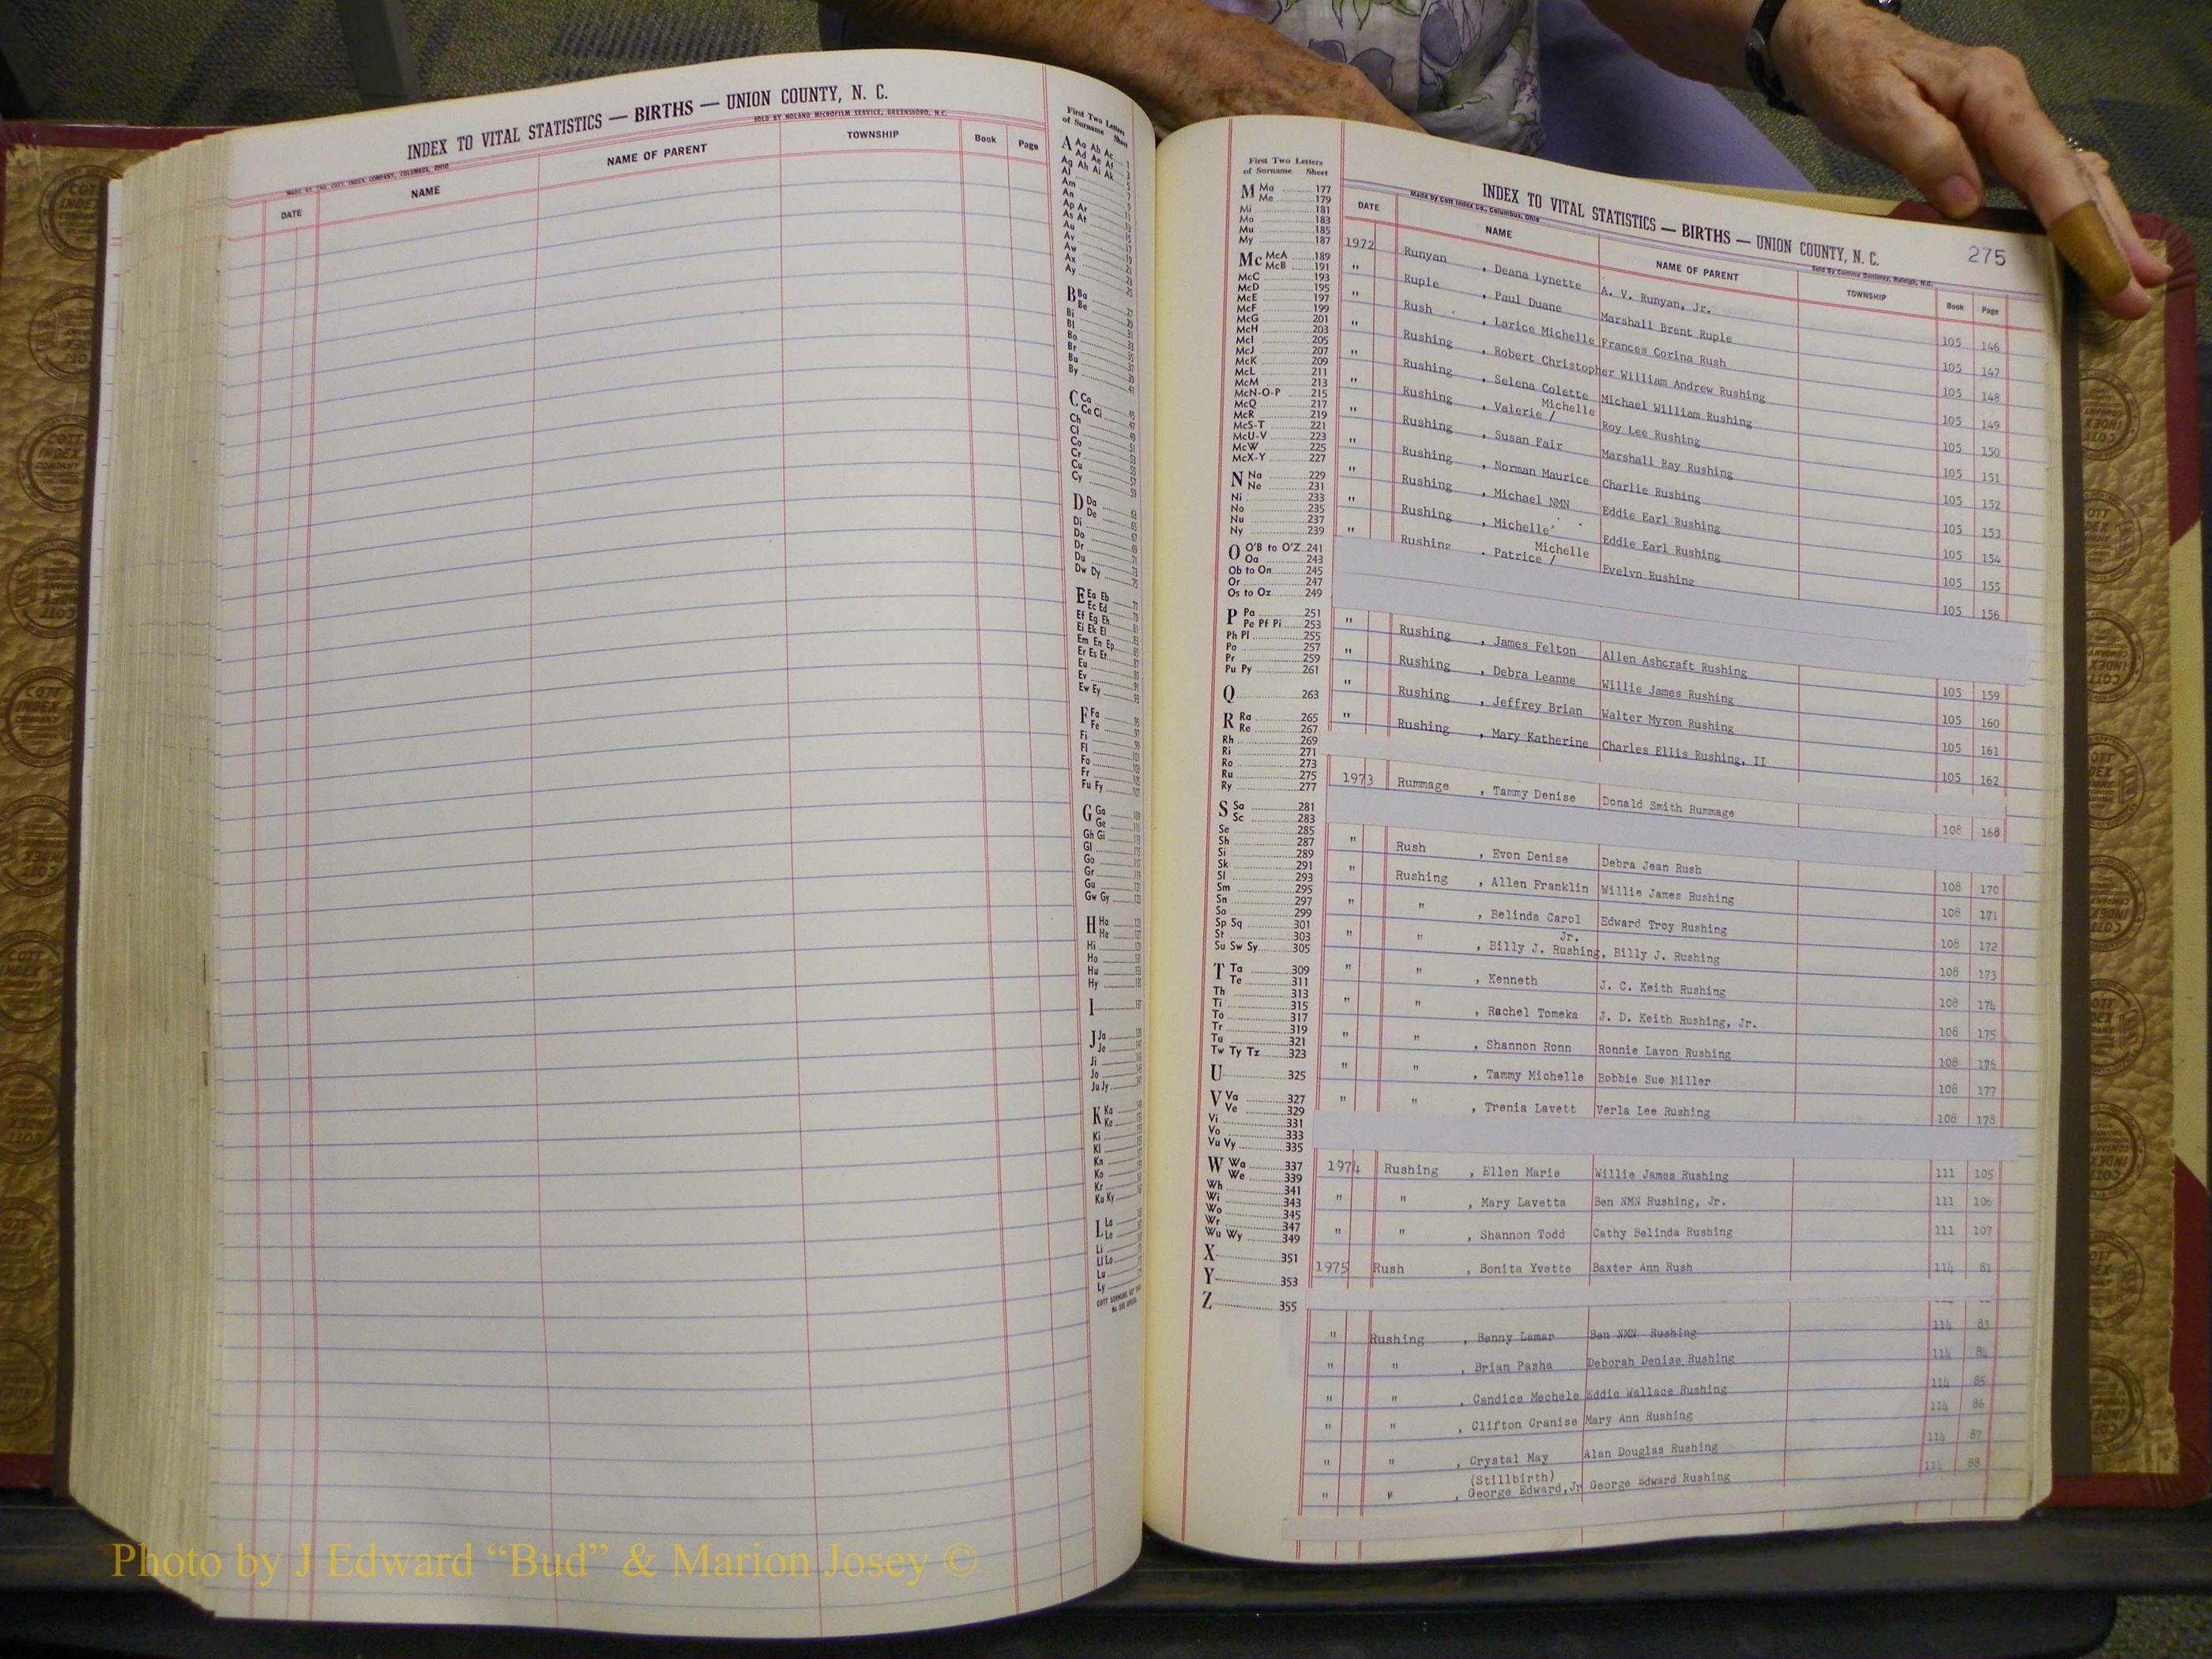 INDEX TO VITAL STATISTICS — BIRTHS — UNION COUNTY, N. C.
MADE BY THE COTT INDEX COMPANY, COLUMBUS, OHIO
SOLD BY NOLAND MICROFILM SERVICE, GREENSBORO, N.C.
DATE NAME NAME OF PARENT TOWNSHIP Book Page
First Two Letters
of Surname Sheet
A Aa Ab Ac
Ad Ae Af
Ag Ah Ai Ak
Al
Am
An
Ap Ar
As At
Au
Av
Aw
Ax
Ay
B Ba
Be
Bi
Bl
Bo
Br
Bu
By
C Ca
Ce Ci
Ch
Cl
Co
Cr
Cu
Cy
D Da
De
Di
Do
Dr
Du
Dw Dy
E Ea Eb
Ec Ed
Ef Eg Eh
Ei Ek El
Em En Ep
Er Es Et
Eu
Ev
Ew Ey
F Fa
Fe
Fi
Fl
Fo
Fr
Fu Fy
G Ga
Ge
Gh Gi
Gl
Go
Gr
Gu
Gw Gy
H Ha
He
Hi
Ho
Hu
Hy
I
J Ja
Je
Ji
Jo
Ju Jy
K Ka
Ke
Ki
Kl
Kn
Ko
Kr
Ku Ky
L La
Le
Li
Ll Lo
Lu
Ly
First Two Letters
of Surname Sheet
M Ma 177
Me 179
Mi 181
Mo 183
Mu 185
My 187
Mc McA 189
McB 191
McC 193
McD 195
McE 197
McF 199
McG 201
McH 203
McI 205
McJ 207
McK 209
McL 211
McM 213
McN-O-P 215
McQ 217
McR 219
McS-T 221
McU-V 223
McW 225
McX-Y 227
N Na 229
Ne 231
Ni 233
No 235
Nu 237
Ny 239
O O'B to O'Z 241
Oa 243
Ob to On 245
Or 247
Os to Oz 249
P Pa 251
Pe Pf Pi 253
Ph Pl 255
Po 257
Pr 259
Pu Py 261
Q 263
R Ra 265
Re 267
Rh 269
Ri 271
Ro 273
Ru 275
Ry 277
S Sa 281
Sc 283
Se 285
Sh 287
Si 289
Sk 291
Sl 293
Sm 295
Sn 297
So 299
Sp Sq 301
St 303
Su Sw Sy 305
T Ta 309
Te 311
Th 313
Ti 315
To 317
Tr 319
Tu 321
Tw Ty Tz 323
U 325
V Va 327
Ve 329
Vi 331
Vo 333
Vu Vy 335
W Wa 337
We 339
Wh 341
Wi 343
Wo 345
Wr 347
Wu Wy 349
X 351
Y 353
Z 355
INDEX TO VITAL STATISTICS — BIRTHS — UNION COUNTY, N. C. 275
Made by Cott Index Co., Columbus, Ohio
DATE NAME NAME OF PARENT TOWNSHIP Book Page
1972 Runyan , Deana Lynette A. V. Runyan, Jr. 105 146
" Ruple , Paul Duane Marshall Brent Ruple 105 147
" Rush , Larice Michelle Frances Corina Rush 105 148
" Rushing , Robert Christopher William Andrew Rushing 105 149
" Rushing , Selena Colette Michael William Rushing 105 150
" Rushing , Valerie / Michelle Roy Lee Rushing 105 151
" Rushing , Susan Fair Marshall Ray Rushing 105 152
" Rushing , Norman Maurice Charlie Rushing 105 153
" Rushing , Michael NMN Eddie Earl Rushing 105 154
" Rushing , Michelle Eddie Earl Rushing 105 155
" Rushing , Patrice / Michelle Evelyn Rushing 105 156
" Rushing , James Felton Allen Ashcraft Rushing 105 159
" Rushing , Debra Leanne Willie James Rushing 105 160
" Rushing , Jeffrey Brian Walter Myron Rushing 105 161
" Rushing , Mary Katherine Charles Ellis Rushing, II 105 162
1973 Rummage , Tammy Denise Donald Smith Rummage 108 168
" Rush , Evon Denise Debra Jean Rush 108 170
" Rushing , Allen Franklin Willie James Rushing 108 171
" " , Belinda Carol Edward Troy Rushing 108 172
" " , Billy J. Rushing, Jr. Billy J. Rushing 108 173
" " , Kenneth J. C. Keith Rushing 108 174
" " , Rachel Tomeka J. D. Keith Rushing, Jr. 108 175
" " , Shannon Ronn Ronnie Lavon Rushing 108 176
" " , Tammy Michelle Bobbie Sue Miller 108 177
" " , Trenia Lavett Verla Lee Rushing 108 178
1974 Rushing , Ellen Marie Willie James Rushing 111 105
" " , Mary Lavetta Ben NMN Rushing, Jr. 111 106
" " , Shannon Todd Cathy Belinda Rushing 111 107
1975 Rush , Bonita Yvette Baxter Ann Rush 114 81
" Rushing , Benny Lamar Ben NMN Rushing 114 83
" " , Brian Pasha Deborah Denise Rushing 114 84
" " , Candice Mechele Eddie Wallace Rushing 114 85
" " , Clifton Cranise Mary Ann Rushing 114 86
" " , Crystal May Alan Douglas Rushing 114 87
(Stillbirth)
" " , George Edward,Jr George Edward Rushing 114 88
Photo by J Edward “Bud” & Marion Josey ©